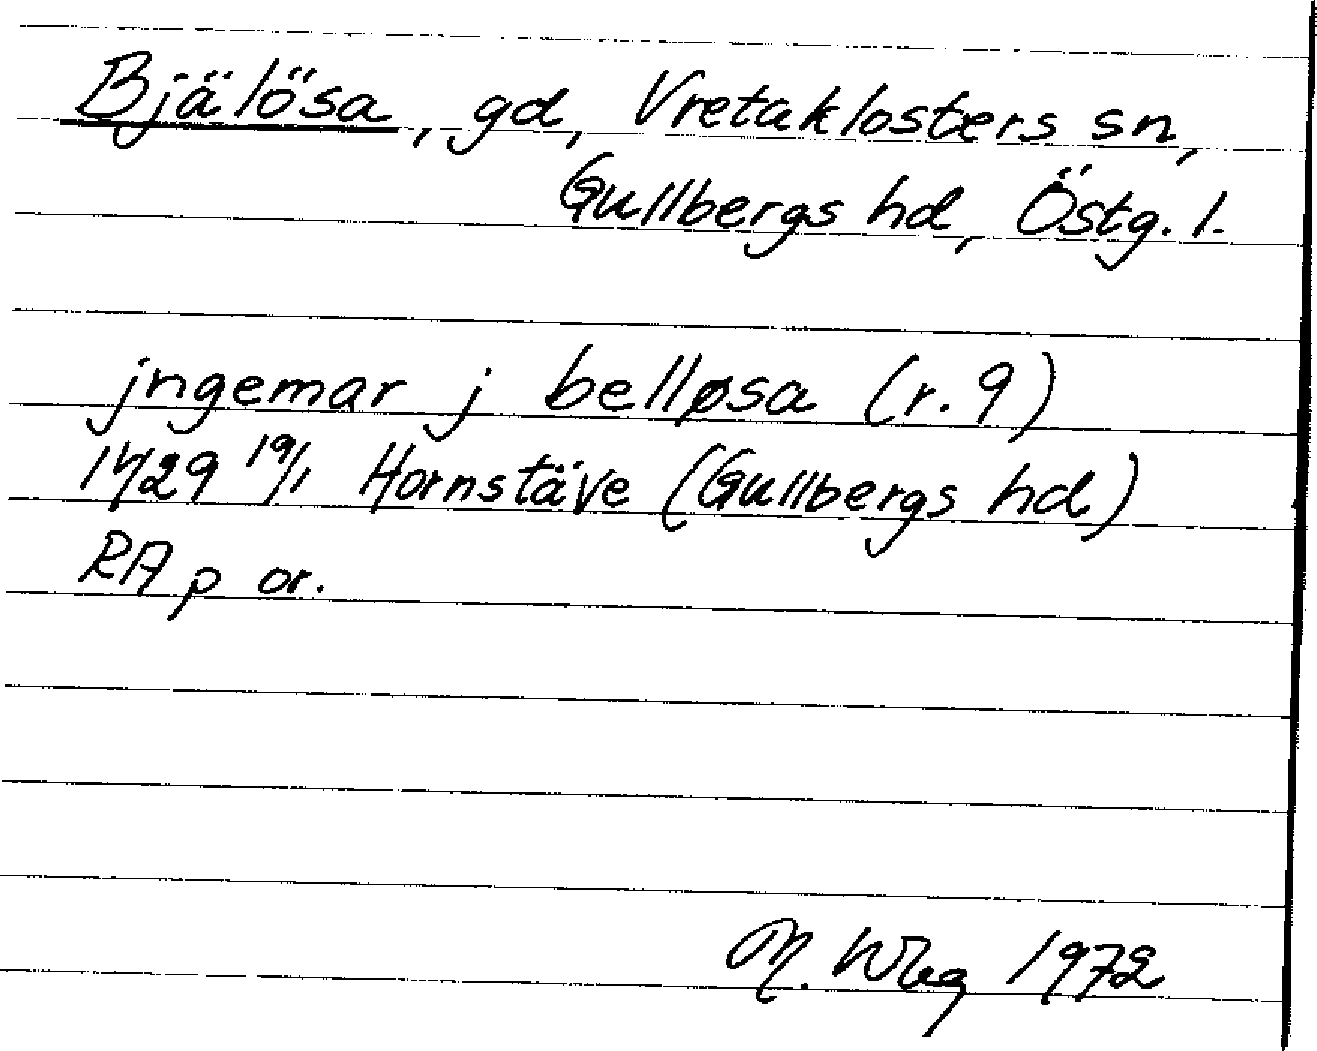 Bjälösa, gd, Vretaklosters sn,
Gullbergs hd, Östg. l.
jngemar j belløsa (r. 9)
1429 19/1 Hornstäve (Gullbergs hd)
RA p or.
M. Wbg 1972